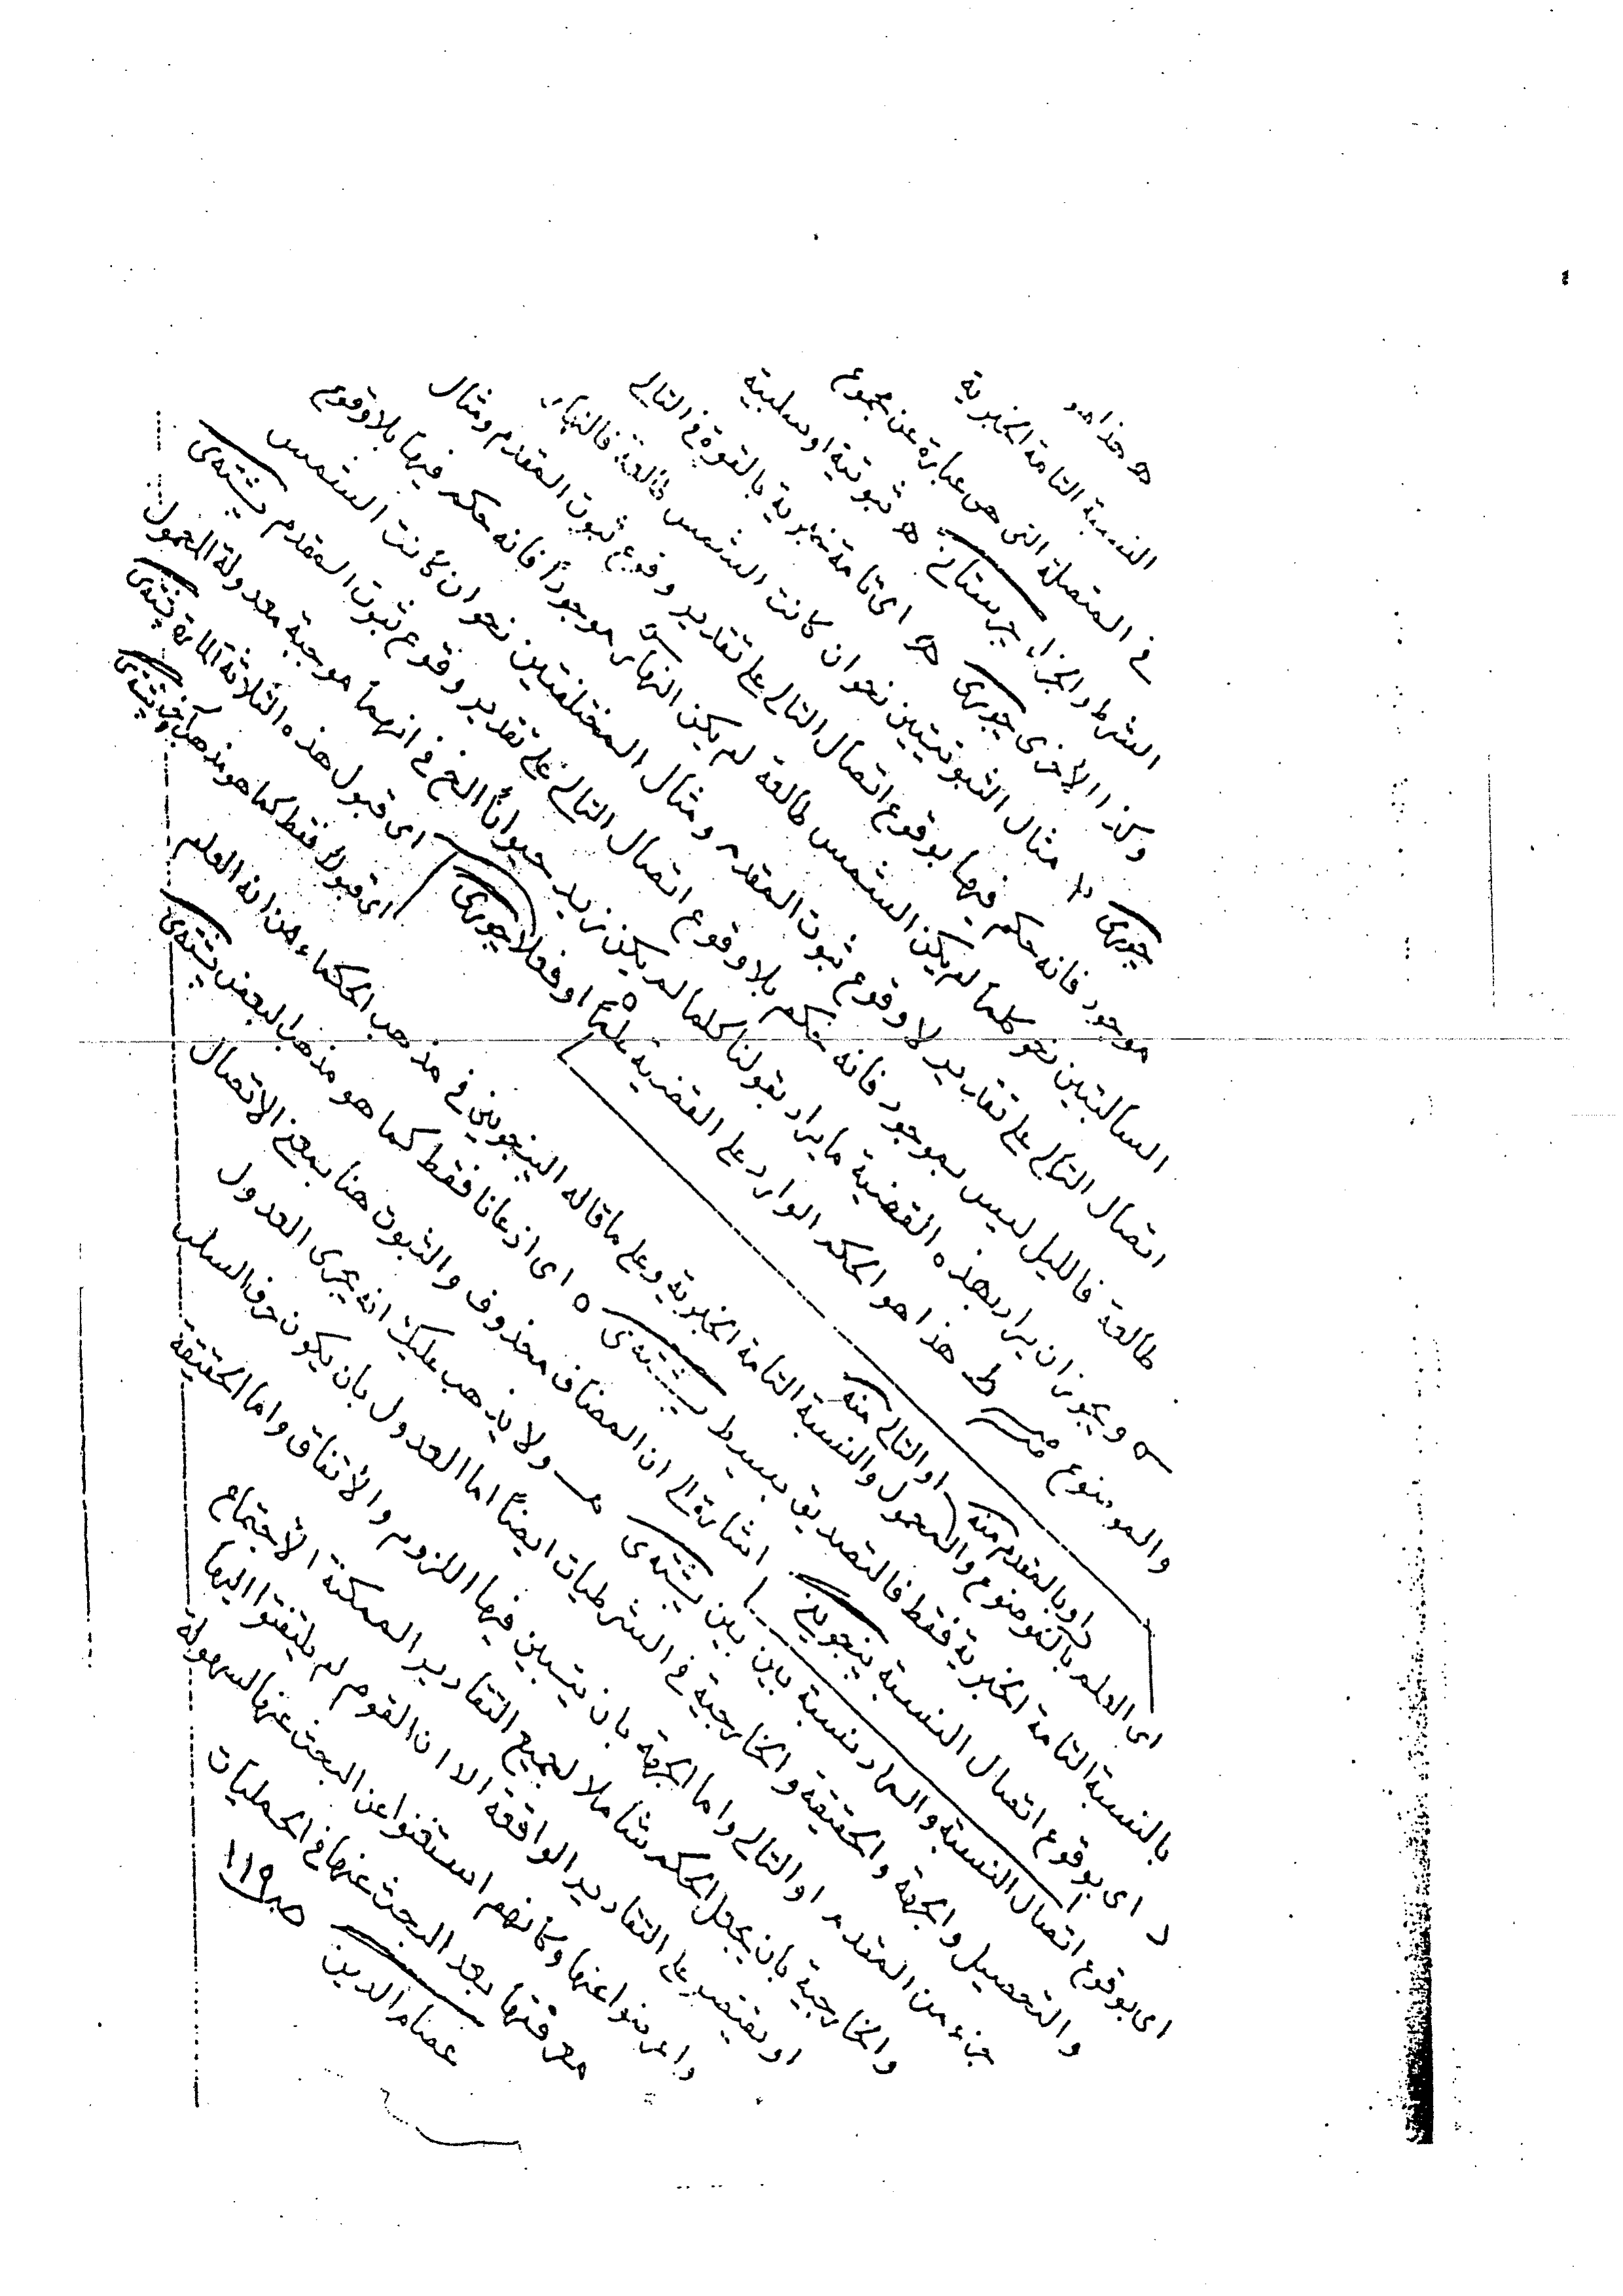 هذا هو
النسبة التامة الخبرية
في المتصلة التي هي عبارة عن مجموع
الشرط والجزاء جرستاني ثبوتية او سلبية
وكذا الاخرى جورى اى تامة خبرية بالقوة في التالي
جورى مثال الثبوتيتين نحو ان كانت الشمس طالعة فالنهار
موجود فانه حكم فيها بوقوع اتصال التالي على تقدير وقوع ثبوت المقدم ومثال
السالبتين نحو كلما لم يكن الشمس طالعة لم يكن النهار موجوداً فانه حكم فيها بلا وقوع
اتصال التالي على تقدير لا وقوع ثبوت المقدم ومثال المختلفتين نحو ان كانت الشمس
طالعة فالليل ليس بموجود فانه حكم بلا وقوع اتصال التالي على تقدير وقوع ثبوت المقدم پشتەى
ويجوز ان يراد بهذه القضية ما يراد بقولنا كلما لم يكن زيد حيواناً الخ في انهما موجبة معدولة المحمول
والموضوع منه ط هذا هو الحكم الوارد على القضية علماً او فعلا جورى اى قبول هذه الثلاثة المارة پشتەى
اى قبولاً فقط كما هو مذهب آخر پشتەى
او بالمقدم منه او التالي منه
اى العلم بالموضوع والمحمول والنسبة التامة الخبرية وعلى ما قاله الينجويني في مذهب الحكماء من انه العلم
بالنسبة التامة الخبرية فقط فالتصديق بسيط پشتەى اى اذعانا فقط كما هو مذهب البعض پشتەى
اى بوقوع اتصال النسبة ينجويني اشارة الى ان المضاف محذوف والثبوت هنا بمعنى الاتصال
اى بوقوع اتصال النسبة والمراد نسبة بين بين پشتەى ولا يذهب عليك انه يجرى العدول
والتحصيل والجهة والحقيقة والخارجية في الشرطيات ايضاً اما العدول بان يكون حرف السلب
جزء من المقدم او التالي واما الجهة بان يتبين فيها اللزوم والاتفاق واما الحقيقة
والخارجية بان يجعل الحكم شاملا لجميع التقادير الممكنة الاجتماع
او يقتصر على التقادير الواقعة الا ان القوم لم يلتفتوا اليها
واعرضوا عنها وكأنهم استغنوا عن البحث عنها لسهولة
معرفتها بعد البحث عنها في الحمليات
عصام الدين صـ ١١٩